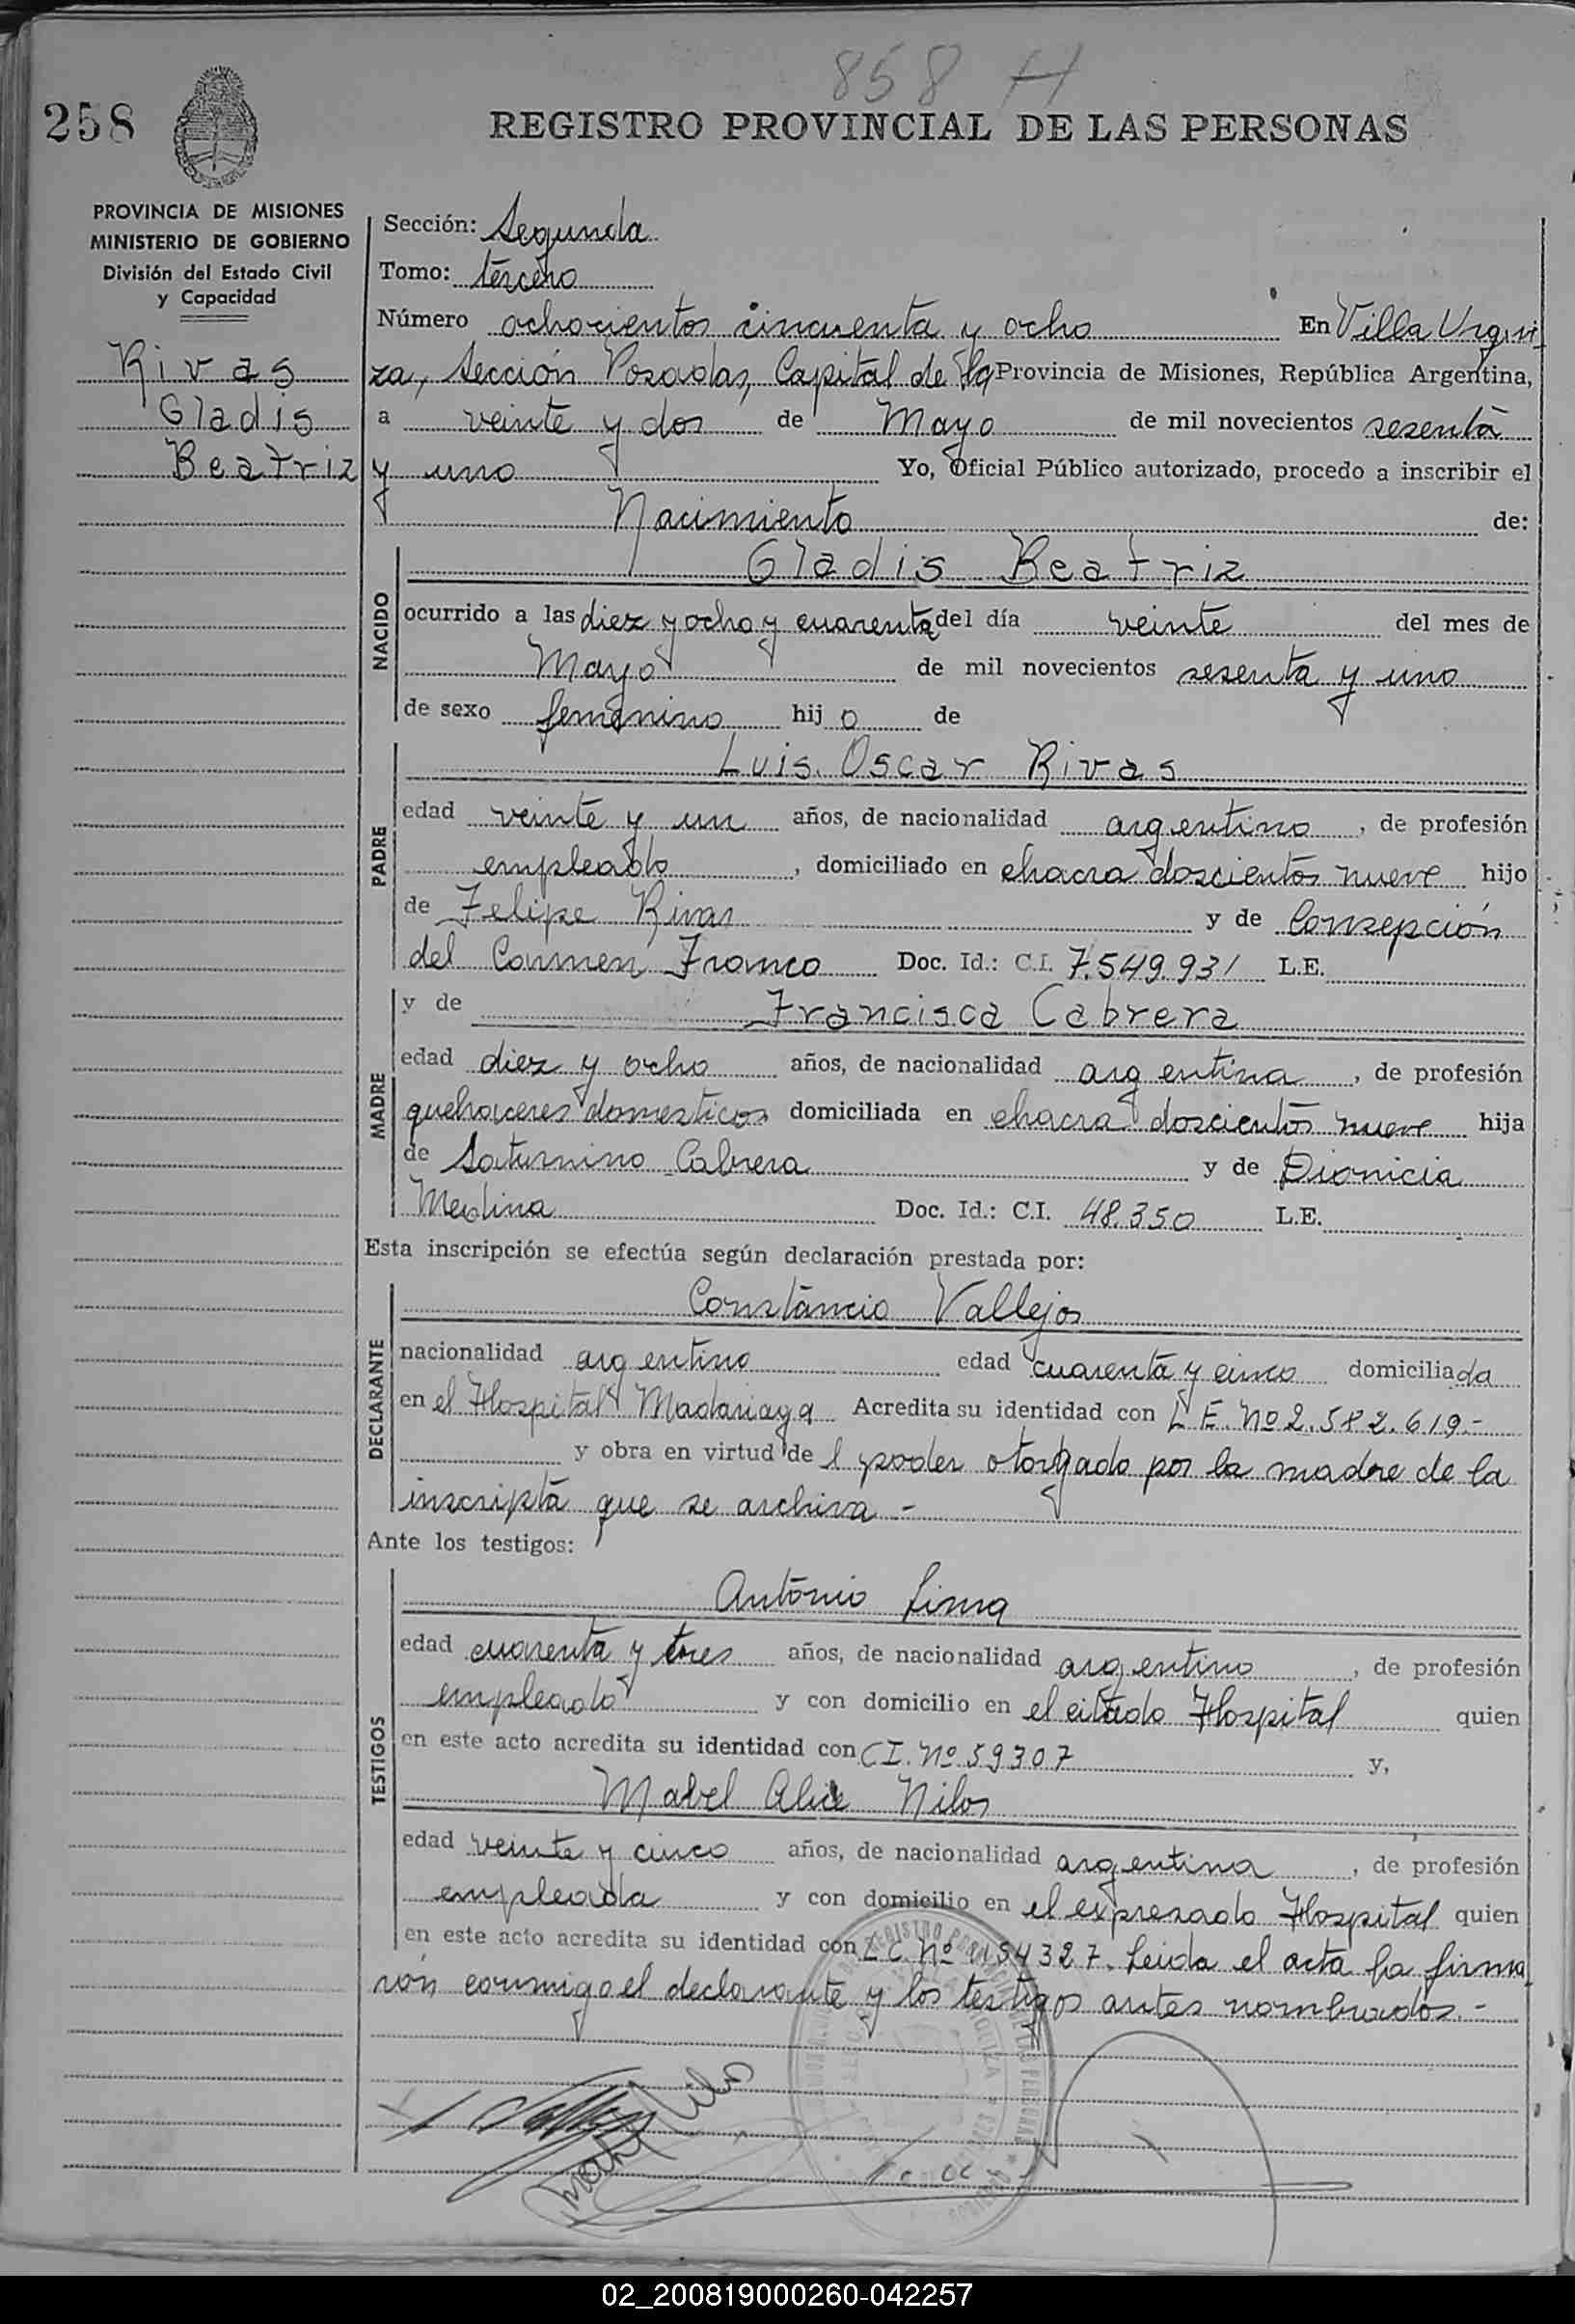 858 H
258
REGISTRO PROVINCIAL DE LAS PERSONAS
PROVINCIA DE MISIONES
MINISTERIO DE GOBIERNO
División del Estado Civil
y Capacidad
Rivas
Gladis
Beatriz
Sección: Segunda
Tomo: tercero
Número ochocientos cincuenta y ocho En Villa Urqui-
za, Sección Posadas, Capital de la Provincia de Misiones, República Argentina,
a veinte y dos de Mayo de mil novecientos sesenta
y uno Yo, Oficial Público autorizado, procedo a inscribir el
Nacimiento de:
NACIDO
Gladis Beatriz
ocurrido a las diez y ocho y cuarenta del día veinte del mes de
Mayo de mil novecientos sesenta y uno
de sexo femenino hij o de
PADRE
Luis Oscar Rivas
edad veinte y un años, de nacionalidad argentino, de profesión
empleado, domiciliado en chacra doscientos nueve hijo
de Felipe Rivas y de Consepción
del Carmen Franco Doc. Id.: C.I. 7.549.931 L.E.
MADRE
y de Francisca Cabrera
edad diez y ocho años, de nacionalidad argentina, de profesión
quehaceres domesticos domiciliada en chacra doscientos nueve hija
de Saturnino Cabrera y de Dionicia
Medina Doc. Id.: C.I. 48.350 L.E.
Esta inscripción se efectúa según declaración prestada por:
DECLARANTE
Constancio Vallejos
nacionalidad argentino edad cuarenta y cinco domiciliada
en el Hospital Madariaga Acredita su identidad con L E. Nº 2.582.619.-
y obra en virtud de l poder otorgado por la madre de la
inscripta que se archiva.-
Ante los testigos:
TESTIGOS
Antonio Lima
edad cuarenta y tres años, de nacionalidad argentino, de profesión
empleado y con domicilio en el citado Hospital quien
en este acto acredita su identidad con C I. Nº 59307 y,
Mabel Alice Nilos
edad veinte y cinco años, de nacionalidad argentina, de profesión
empleada y con domicilio en el expresado Hospital quien
en este acto acredita su identidad con L C. Nº 1154327. Leida el acta la firma-
rón conmigo el declarante y los testigos antes nombrados.-
02_200819000260-042257